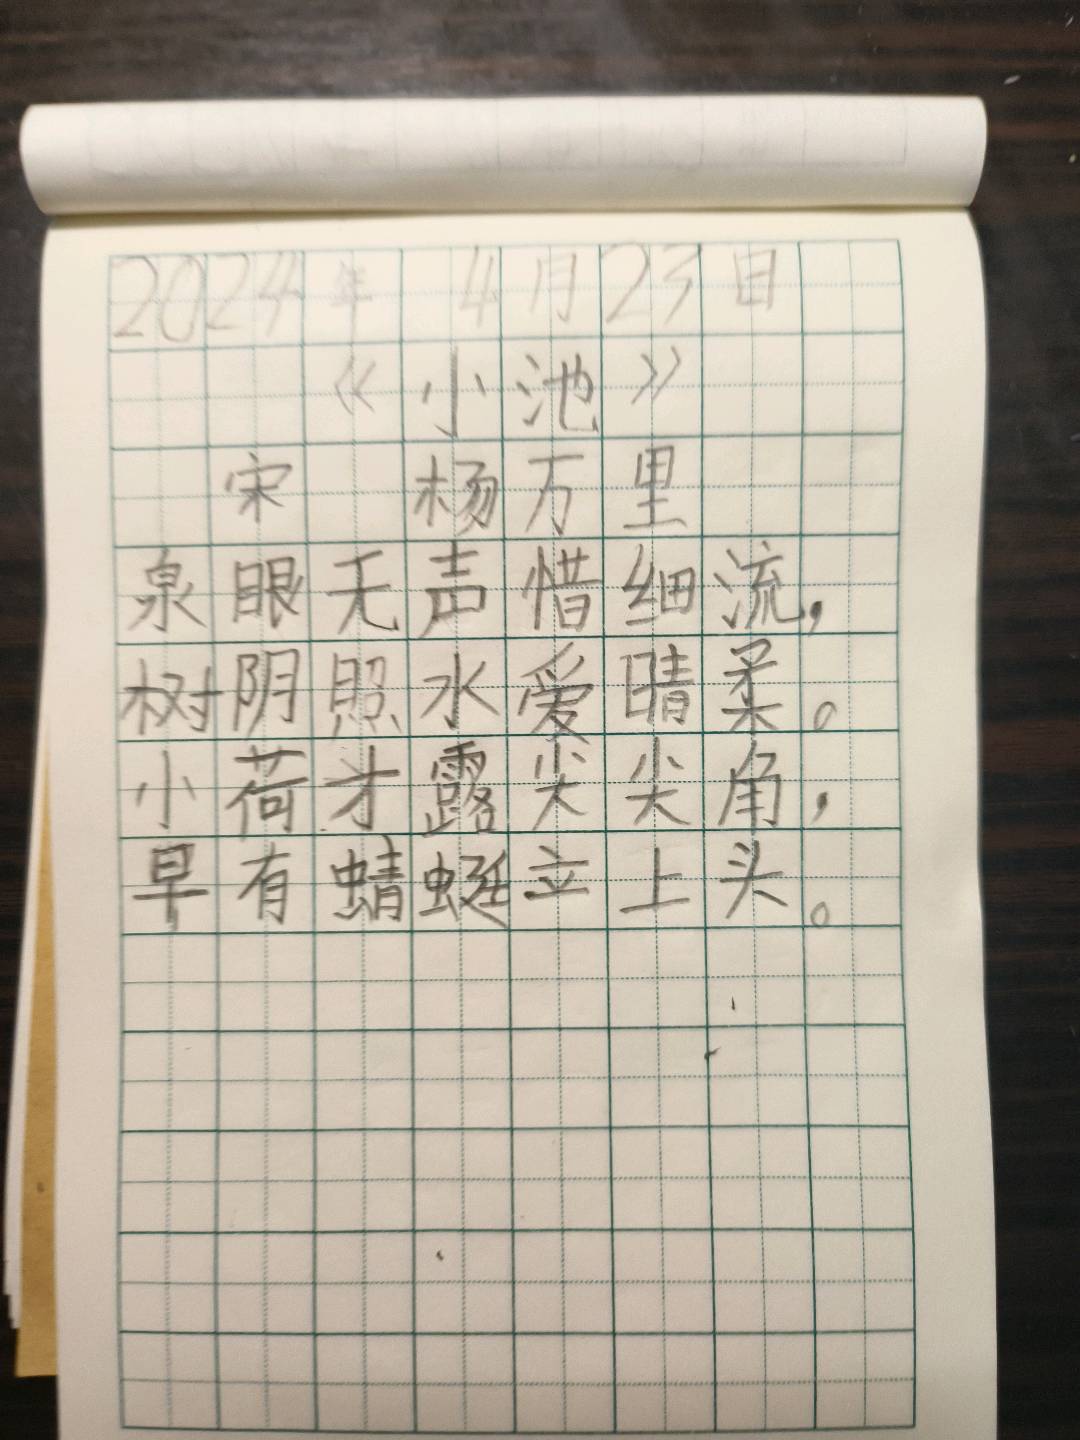 2024年 4月23日
《小池》
宋 杨万里
泉眼无声惜细流，
树阴照水爱晴柔。
小荷才露尖尖角，
早有蜻蜓立上头。